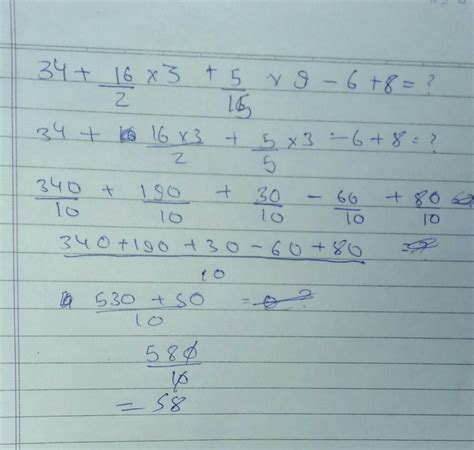 34 + 16/2 x 3 + 5/15 x 9 - 6 + 8 = ?
34 + 16 x 3/2 + 5/5 x 3 - 6 + 8 = ?
340/10 + 190/10 + 30/10 - 60/10 + 80/10
340 + 190 + 30 - 60 + 80/10
530 + 50/10 = ?
580/10
= 58